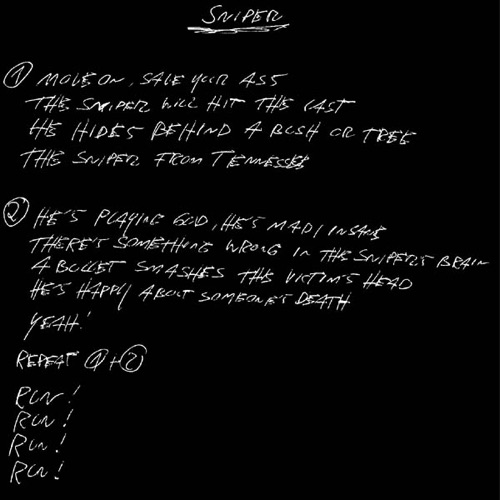 SNIPER
① MOVE ON, SAVE YOUR ASS
THE SNIPER WILL HIT THE LAST
HE HIDES BEHIND A BUSH OR TREE
THE SNIPER FROM TENNESSEE
② HE'S PLAYING GOD, HE'S MAD, INSANE
THERE'S SOMETHING WRONG IN THE SNIPER'S BRAIN
A BULLET SMASHES THE VICTIM'S HEAD
HE'S HAPPY ABOUT SOMEONE'S DEATH
YEAH!
REPEAT ①+②
RUN!
RUN!
RUN!
RUN!